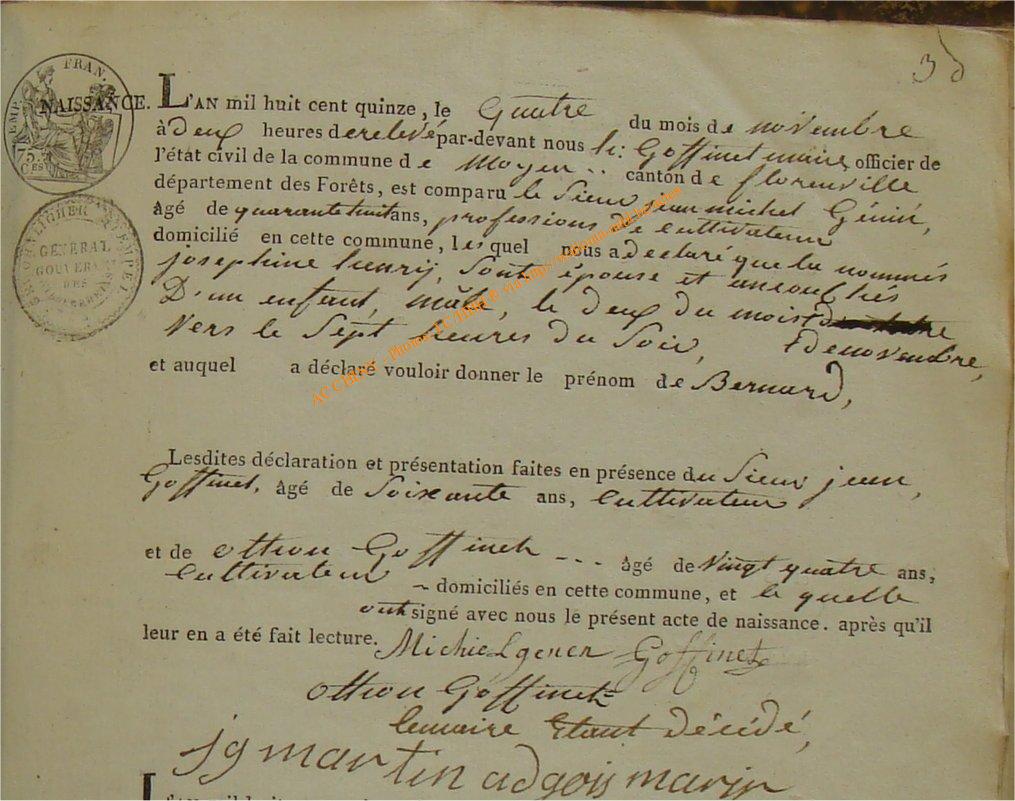 35
EMP. FRAN.
75
CES
GÉNÉRAL
GOUVER
NAISSANCE. L'AN mil huit cent quinze, le Quatre du mois de novembre
à deux heures de relevé par-devant nous Goffinet maire officier de
l'état civil de la commune de Moyen canton de florenville
département des Forêts, est comparu le Sieur jean michel Génin,
âgé de quarante huit ans, professions de cultivateur
domicilié en cette commune, lesquel nous a declaré que la nommés
josephine henrÿ, Sont épouse et
D'un enfant, mâle, le deux du mois
Vers le Sept heures du Soir, de novembre,
et auquel a déclaré vouloir donner le prénom de Bernard,
Lesdites déclaration et présentation faites en présence du Sieur jean,
Goffinet, âgé de Soixante ans, Cultivateur
et de ottion Goffinet --- âgé de vingt quatre ans,
Cultivateur - domiciliés en cette commune, et le quelle
ont signé avec nous le présent acte de naissance. après qu'il
leur en a été fait lecture. Michiel genen Goffinet
ottion Goffinet
lemaire Etant décédé,
jg martin adgois marin
L'AN mil huit